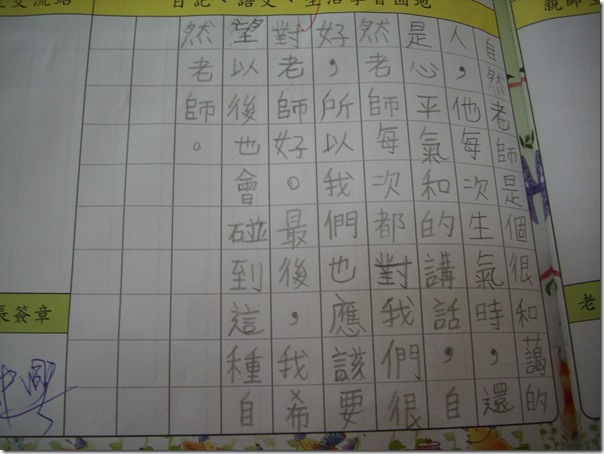 親師
日記、語文、生活學習園地
交流站
自然老師是個很和藹的
人，他每次生氣時，還
是心平氣和的講話，自
然老師每次都對我們很
好，所以我們也應該要
對老師好。最後，我希
望以後也會碰到這種自
然老師。
老
長簽章